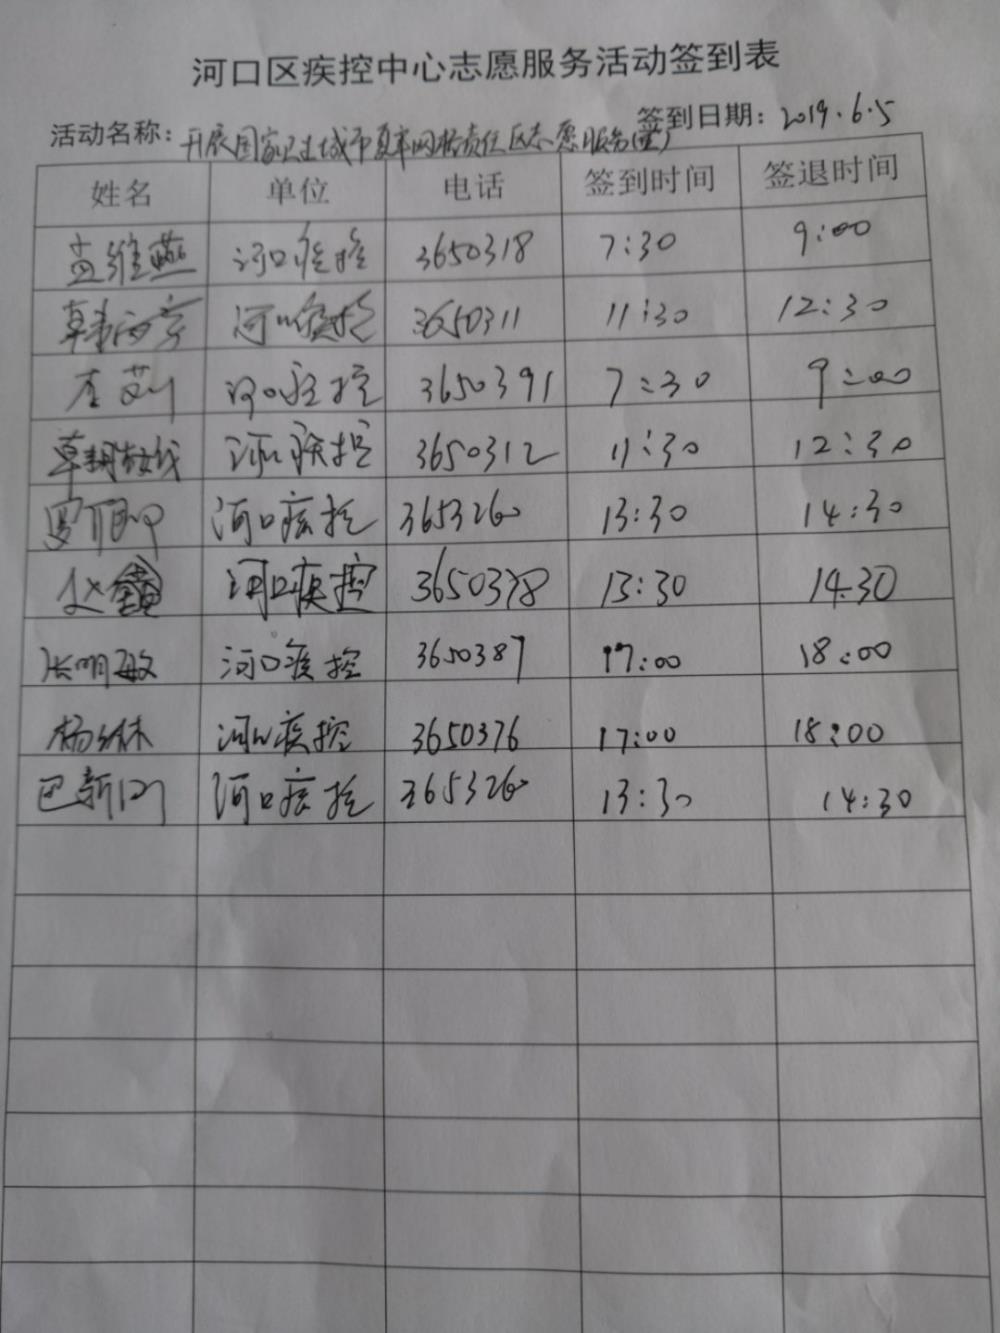 河口区疾控中心志愿服务活动签到表
签到日期：2019.6.5
活动名称：开展国家卫生城市复审网格责任区志愿服务
姓名 单位 电话 签到时间 签退时间
孟维燕 河口疾控 3650318 7:30 9:00
韩 河口疾控 3650311 11:30 12:30
李 河口疾控 3650391 7:30 9:00
河口疾控 3650312 11:30 12:30
河口疾控 3653260 13:30 14:30
河口疾控 3650378 13:30 14:30
张明敏 河口疾控 3650387 17:00 18:00
杨 河口疾控 3650376 17:00 18:00
巴新 河口疾控 3653260 13:30 14:30